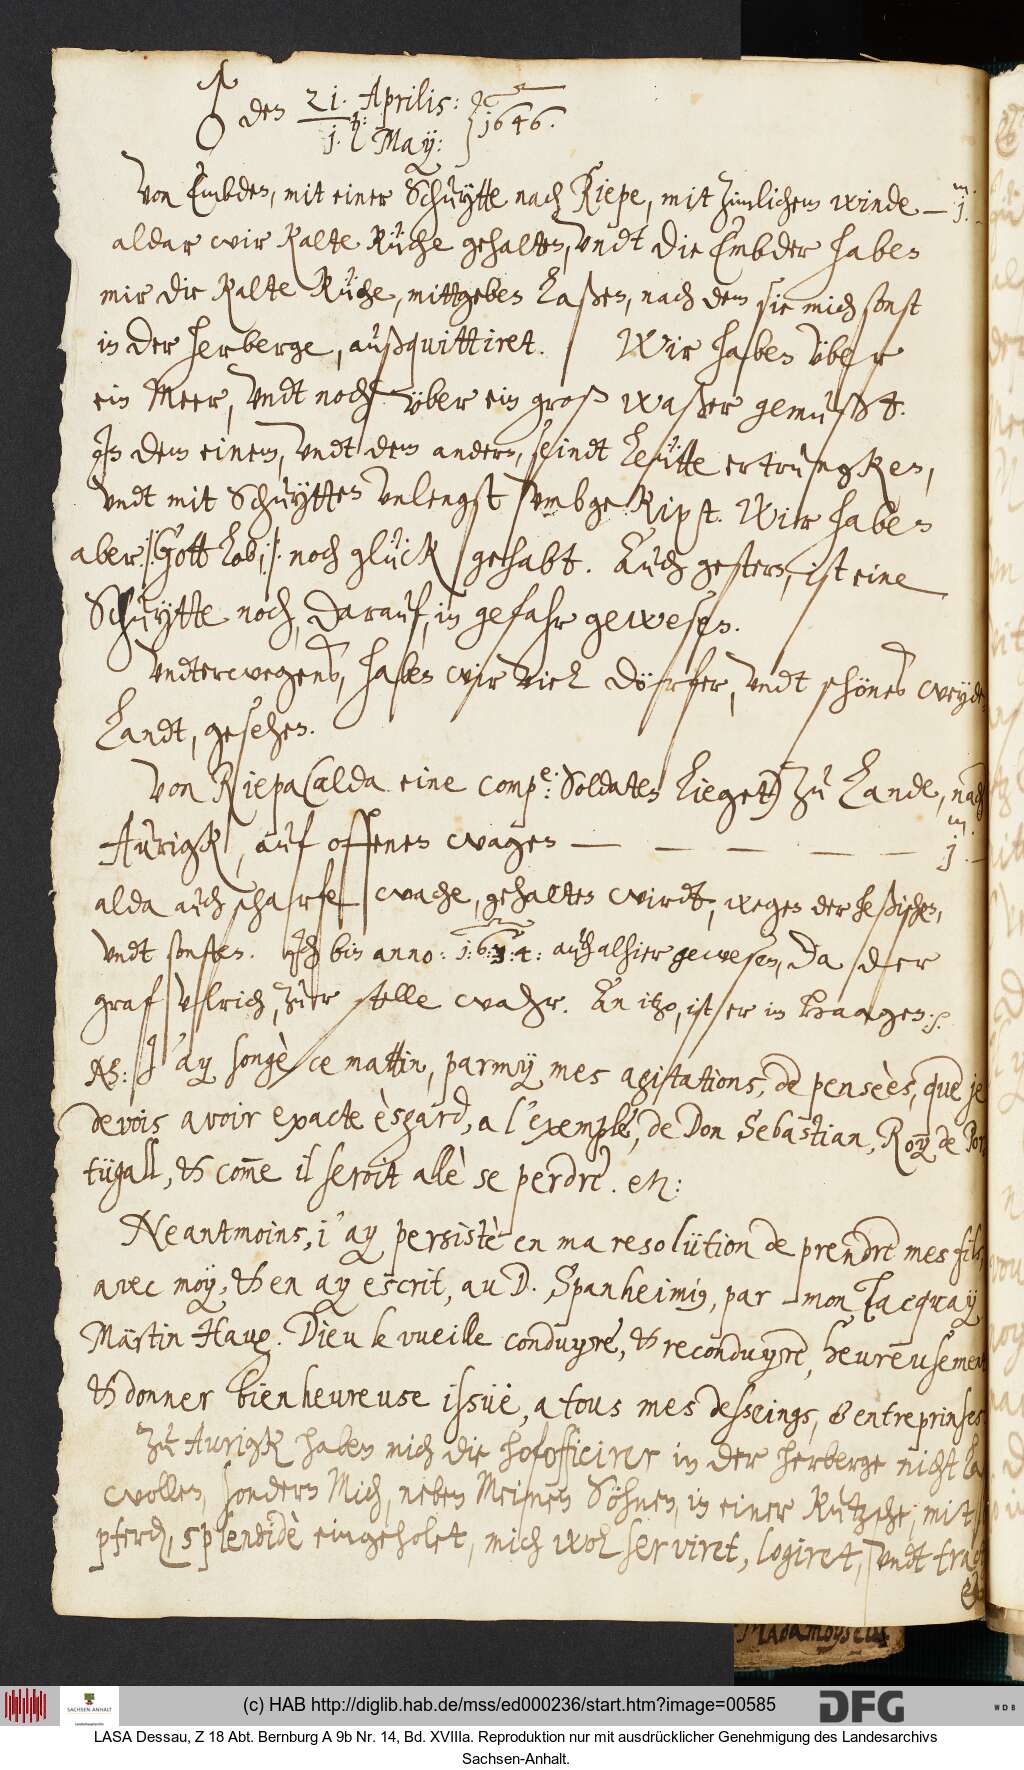 ♂ den 21. Aprilis: 1646.
1. May:
Von Embden, mit einer Schuytte nach Riepe, mit zimlichem winde — 1. m.
aldar wir Kalte Küche gehalten, undt die Embder haben
mir die Kalte Küche, mittgeben laßen, nach dem sie mich sonst
in der herberge, außquittiret. Wir haben über
ein Meer, undt noch über ein groß waßer gemußt.
In dem einem, undt dem andern, seindt leütte ertrungken,
undt mit Schuytten unlengst umbgekipft. Wir haben
aber :/Gott lob:/ noch glück gehabt. Auch gestern, ist eine
Schuytte noch, darauf, in gefahr gewesen.
Undterwegens, haben wir viel dörfer, undt schönes weyde
landt, gesehen.
Von Riepa (alda eine comp.e: Soldaten lieget) zu lande, nach
Aurigk, auf offenen wagen — — — — — 1. m.
alda auch scharfe wache, gehalten wirdt, wegen der heßischen,
undt sonsten. Ich bin anno: 1.6.3.4: auch alhier gewesen, da der
graf Ulrich, zur stelle wahr. An itzo, ist er in Haagen.
NB: J'ay songè ce mattin, parmÿ mes agitations, de pensèes, que je
devois avoir exacte èsgard, a l'exemple, de Don Sebastian, Roÿ de Por
tügall, & com̅e il seroit allè se perdre. etc:
Neantmoins, i'ay persistè en ma resolütion de prendre mes fils,
avec moÿ, & en ay escrit, au D. Spanheimiq, par mon Lacquaÿ
Märtin Haug. Dieu le vueille conduyre, & reconduyre, heureusement
& donner bienheureuse issuë, a tous mes desseings, & entreprinses
Zu Aurigk haben mich die hofofficirer in der herberge nicht la
wollen, sondern Mich, neben Meinen Söhnen, in einer Kutzsche, mit
pferd, splendidè eingeholet, mich wol serviret, logiret, undt tract
Madamoyselle
(c) HAB http://diglib.hab.de/mss/ed000236/start.htm?image=00585
SACHSEN-ANHALT
DFG
WDB
LASA Dessau, Z 18 Abt. Bernburg A 9b Nr. 14, Bd. XVIIIa. Reproduktion nur mit ausdrücklicher Genehmigung des Landesarchivs
Sachsen-Anhalt.